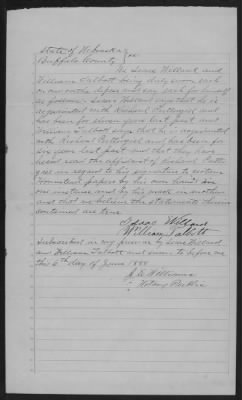 State of Nebraska } ss
Buffalo County
We Isaac Willard and
William Talbott being duly sworn each
on our oaths depose and say each for himself
as follows. Isaac Willard says that he is
acquainted with Richard
and has been for eleven years last past and
William Talbott says that he is acquainted
with Richard and has been for
six years last past and that they have
heard read the affidavit of Richard
in regard to his signature to certain
Homestead papers by his own hand in
one instance and by his mark in another
and that we believe the statements therein
contained are true
Isaac Willard
William Talbott
Subscribed in my presence by Isaac Willard
and William Talbott and sworn to before me
this 6th day of June 1888
Williams
Notary Public